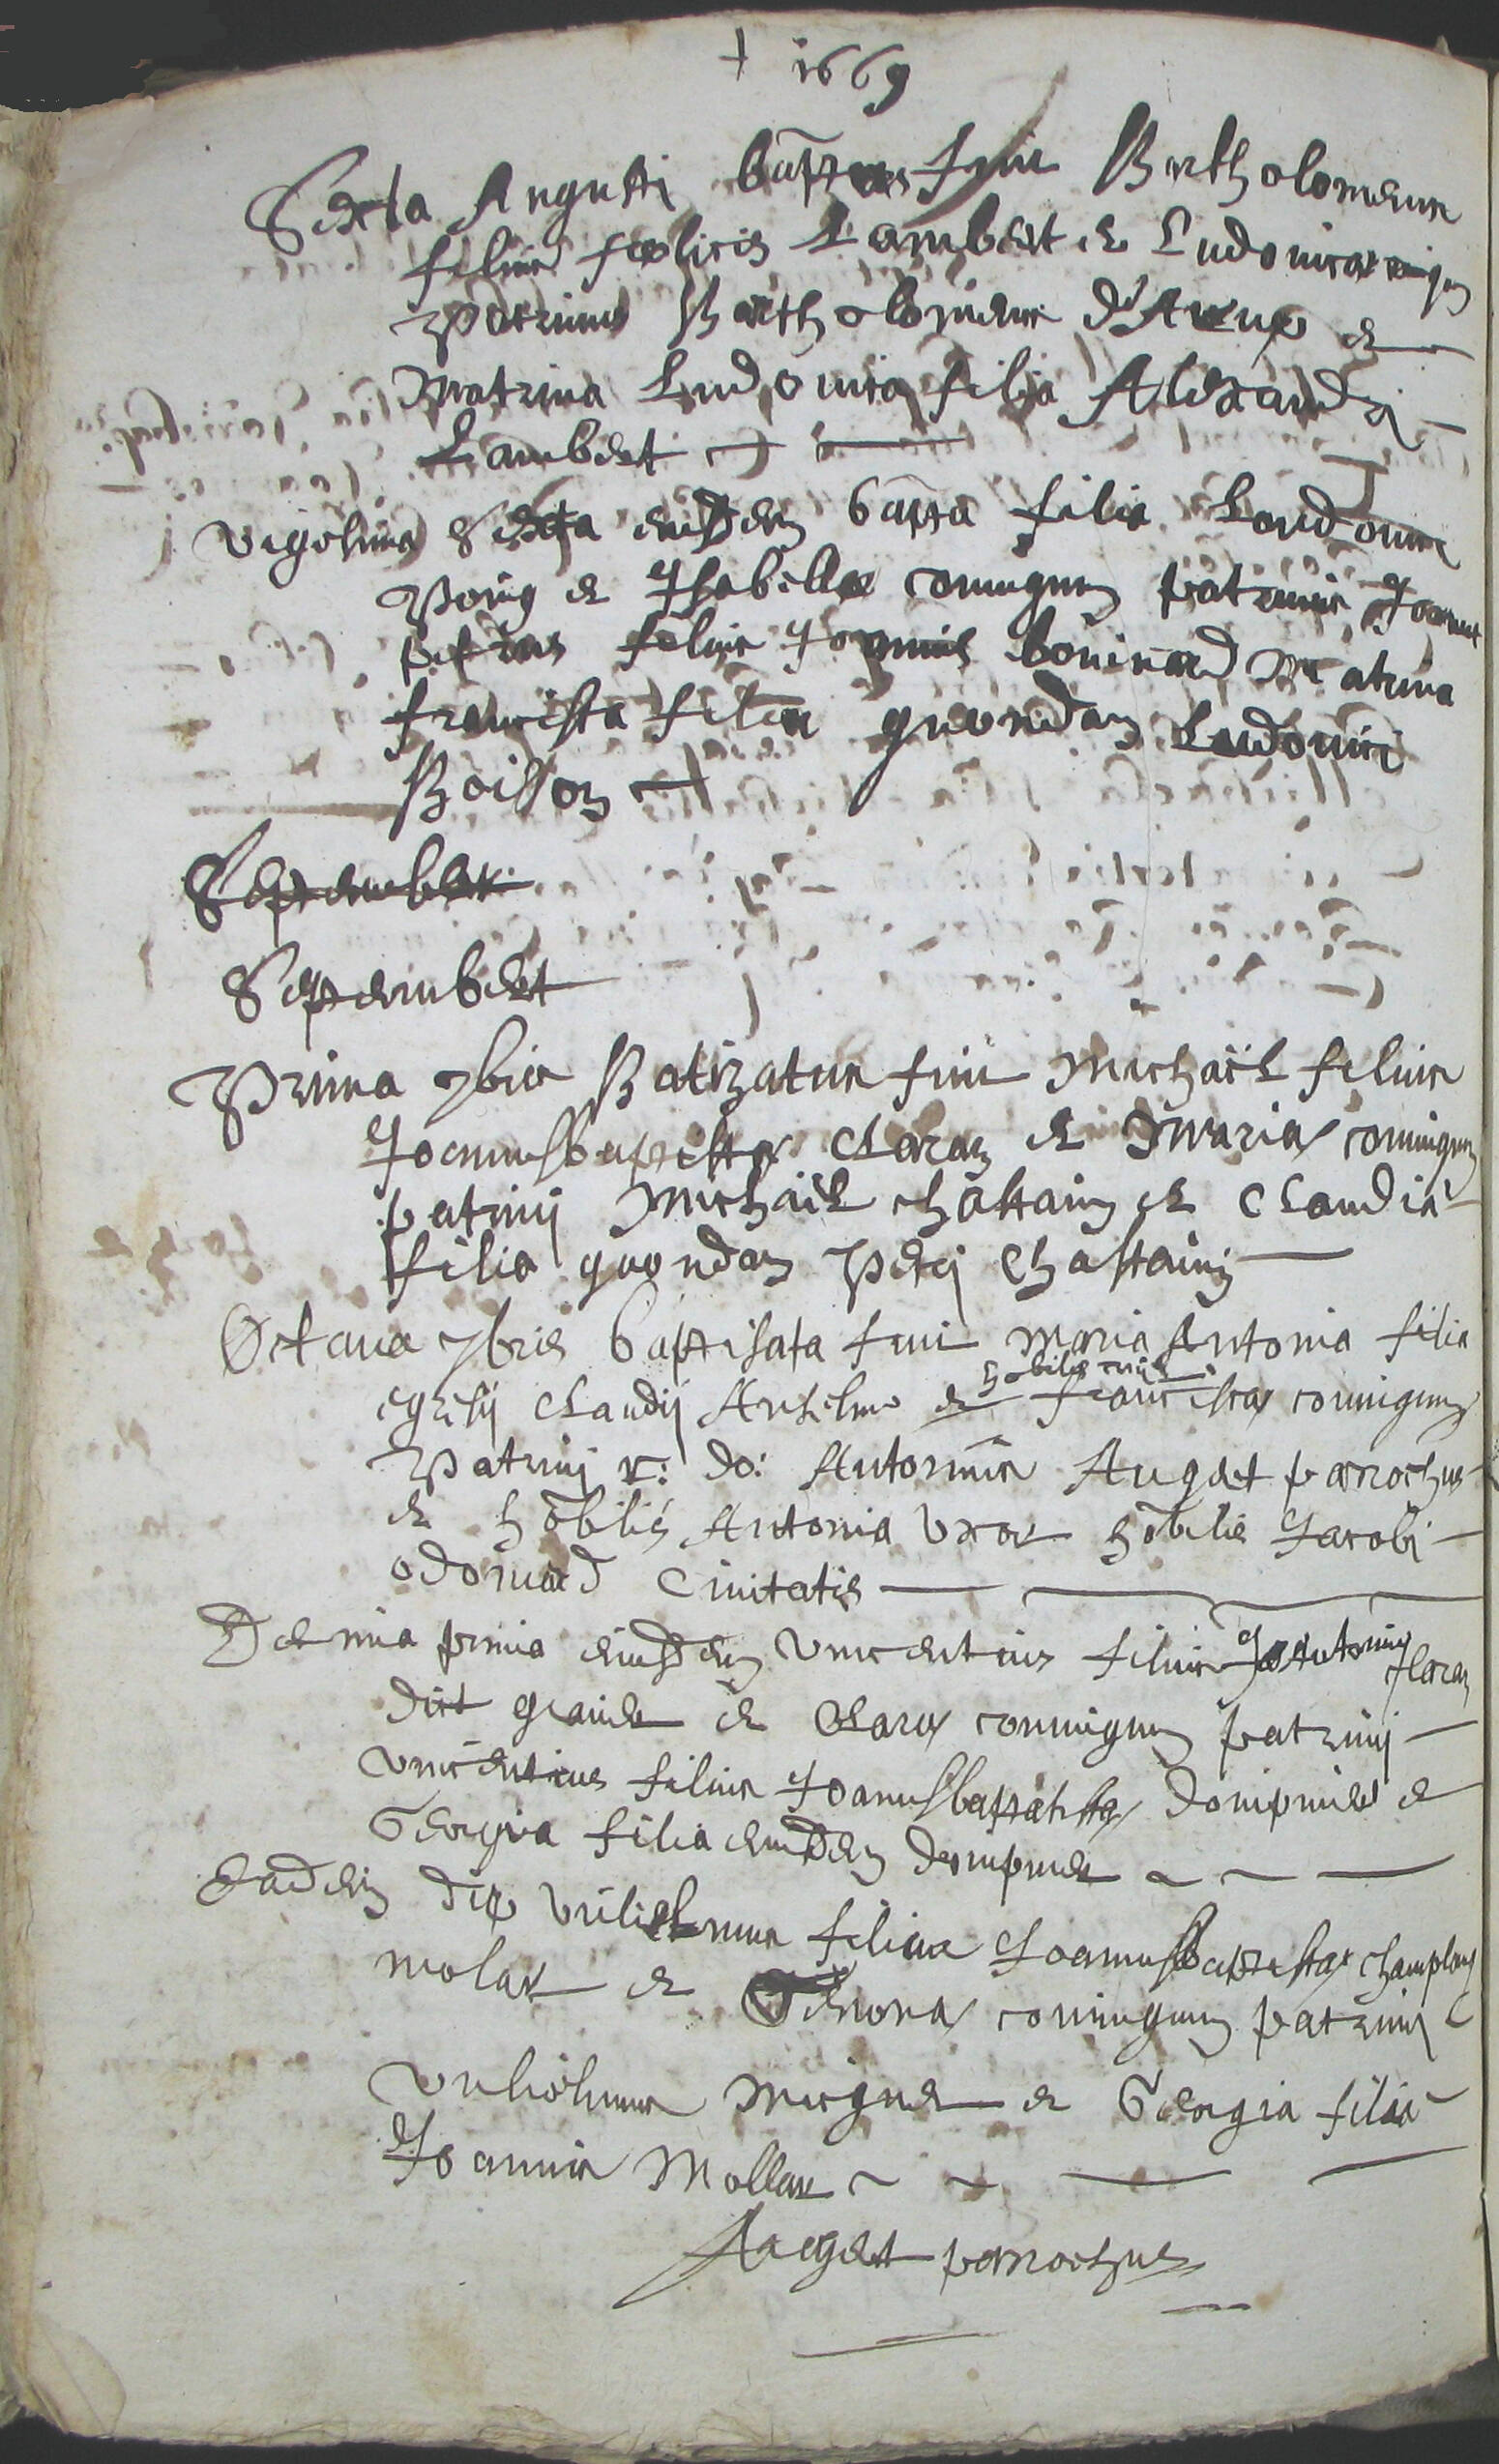 + 1669
Sexta Augusti bapttus fuit Bartholomeus
filius foelicis Lambert et Ludovicae coniugum
Patrinus Bartholomeus d'Avup et
Matrina Ludovica filia Alexandri
Lambert
Vigesima Sexta eiusdem bapta filia Ludovici
Poing et Isabellae coniugum patrinus Joannes
petrus filius Joannis bonivard Matrina
francisca filia quondam Ludovici
Boisson
September
September
Prima 7bris Batizatus fuit Michaël filius
Joannisbaptistae Claraz et Mariae coniugum
patrinij Michaël Chastaing et Claudia
filia quondam Petrj Chastaing
Octava 7bris baptisata fuit Maria Antonia filia
egregij Claudij Anselme et hobilis francescae coniugum
Patrinij r: do: Antonius Auget parrochus
et hobilis Antonia Uxor hobilis Jacobi
odomard Civitatis
Decima prima eiusdem Vincentius filius Jo Antonij Claraz
dict grande et Clarae coniugum patrinij
Vincentius filius Joannisbaptistae Dompmier et
Georgia filia eiusdem dompmier
Eadem die Vulielmus filius Joannisbaptistae Champlong
molar et Genona coniugum patrinij
Vulielmus Mugner et Georgia filia
Joannis Mollar
Auget parrochus